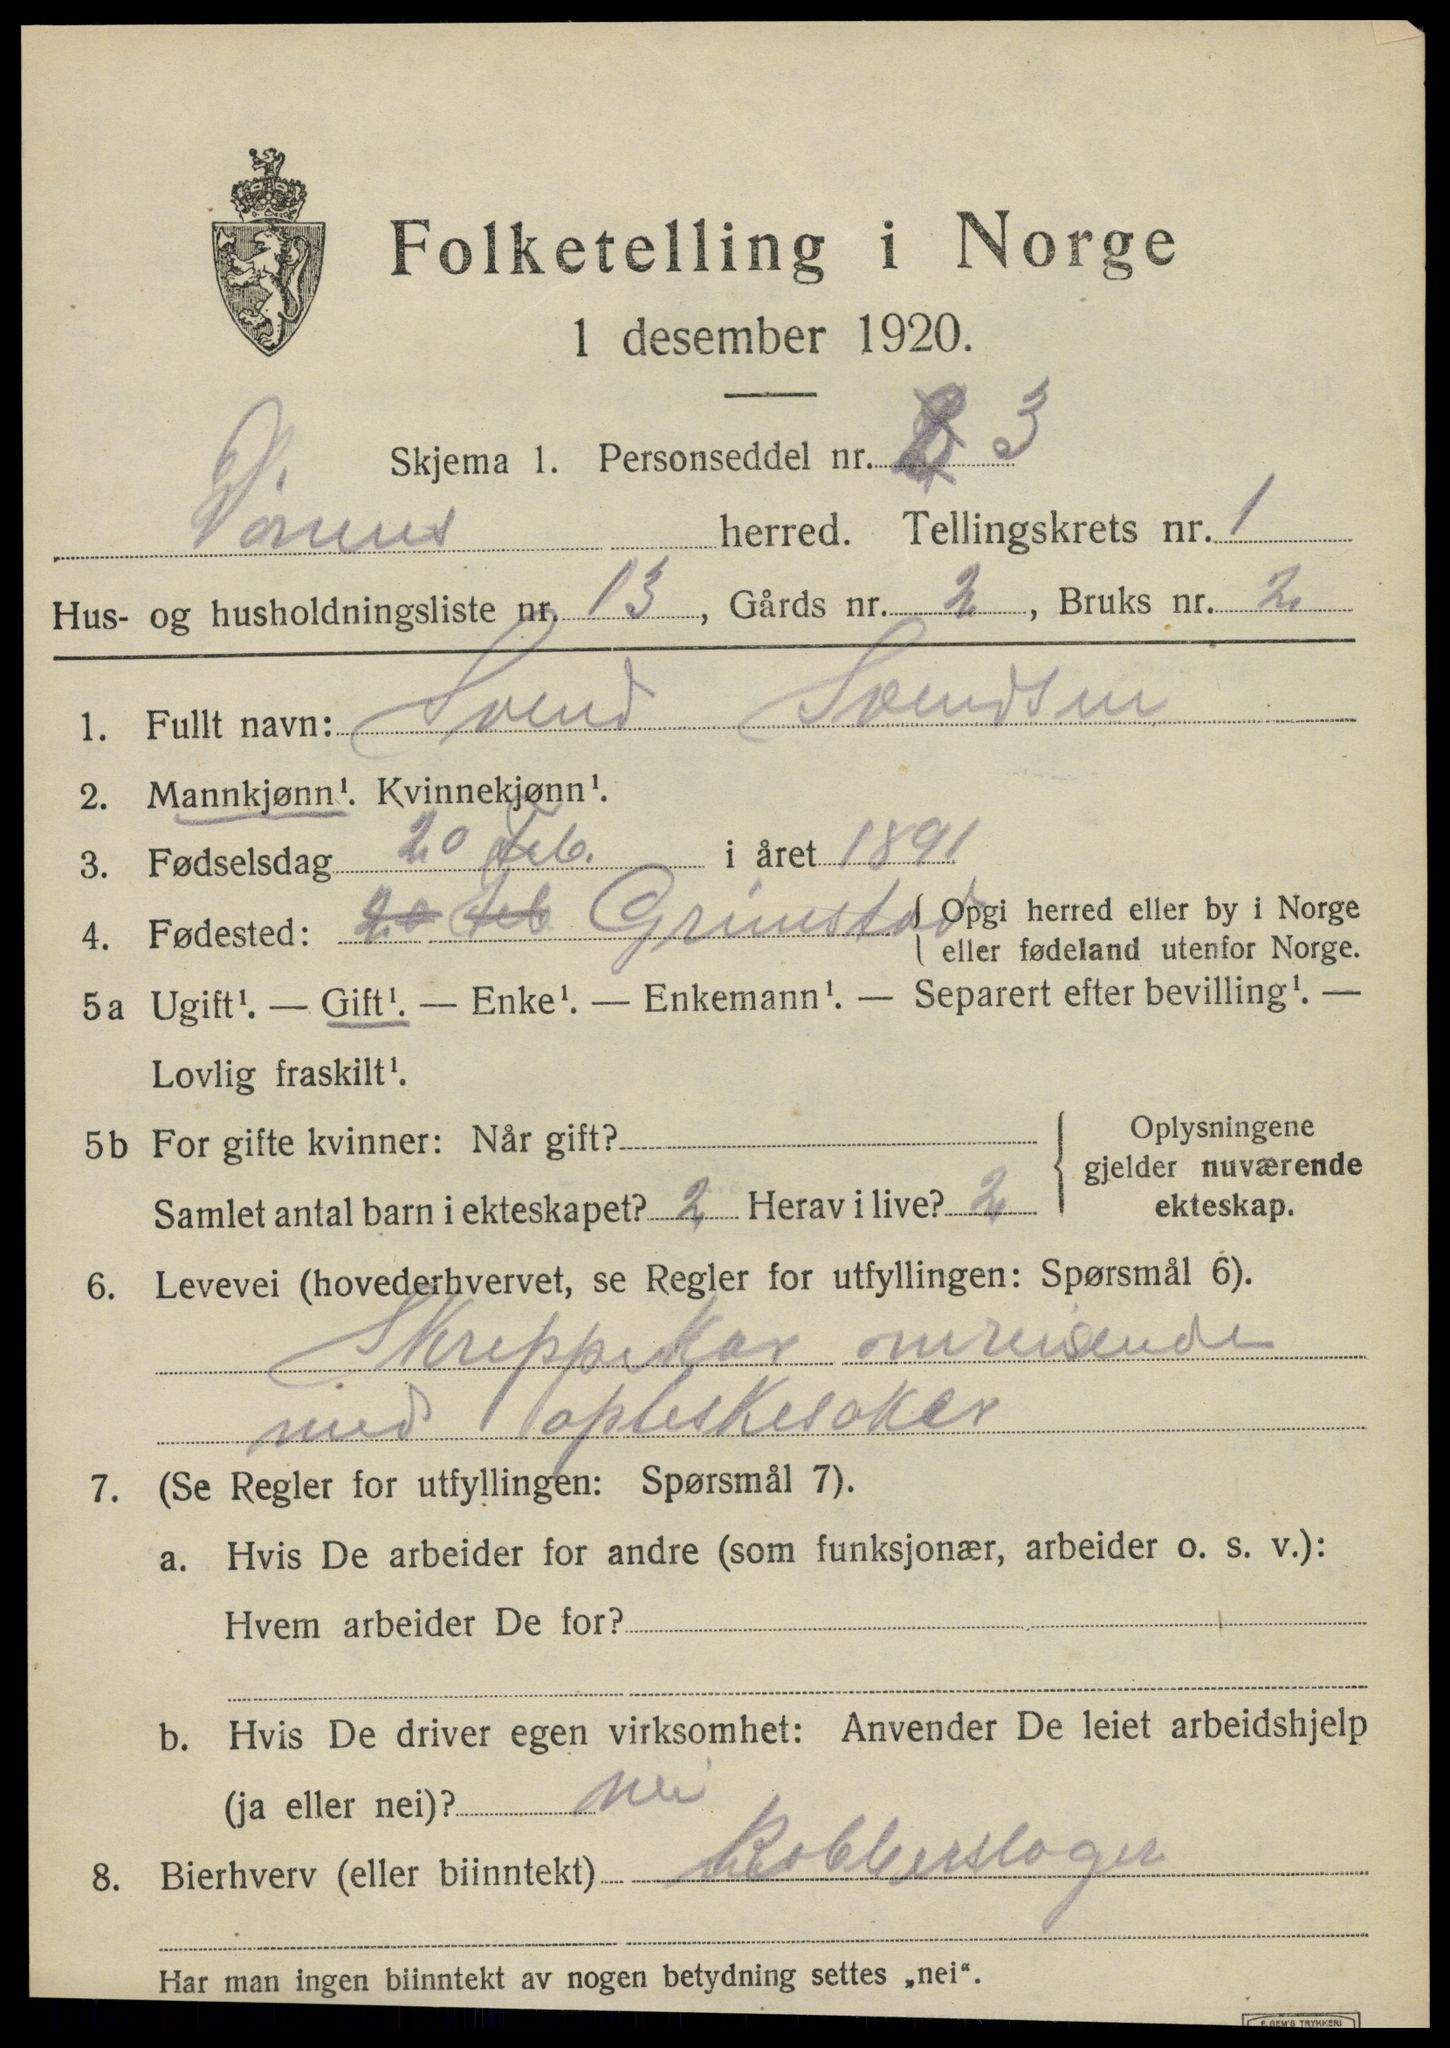 Folketelling i Norge
1 desember 1920.
Skjema 1. Personseddel nr. 3
herred. Tellingskrets nr. 1
Hus- og husholdningsliste nr. 13, Gårds nr. 2, Bruks nr. 2
1. Fullt navn: Svend Svendsen
2. Mannkjønn¹. Kvinnekjønn¹.
3. Fødselsdag 20 Feb. i året 1891
4. Fødested: 20 Feb Grimstad { Opgi herred eller by i Norge
eller fødeland utenfor Norge.
5a Ugift¹. — Gift¹. — Enke¹. — Enkemann¹. — Separert efter bevilling¹. —
Lovlig fraskilt¹.
5b For gifte kvinner: Når gift?
Samlet antal barn i ekteskapet? 2 Herav i live? 2
Oplysningene
gjelder nuværende
ekteskap.
6. Levevei (hovederhvervet, se Regler for utfyllingen: Spørsmål 6).
Skreppekar omreisende
med
7. (Se Regler for utfyllingen: Spørsmål 7).
a. Hvis De arbeider for andre (som funksjonær, arbeider o. s. v.):
Hvem arbeider De for?
b. Hvis De driver egen virksomhet: Anvender De leiet arbeidshjelp
(ja eller nei)? nei
8. Bierhverv (eller biinntekt) Kobberslager
Har man ingen biinntekt av nogen betydning settes „nei“.
F. BEM'S TRYKKERI